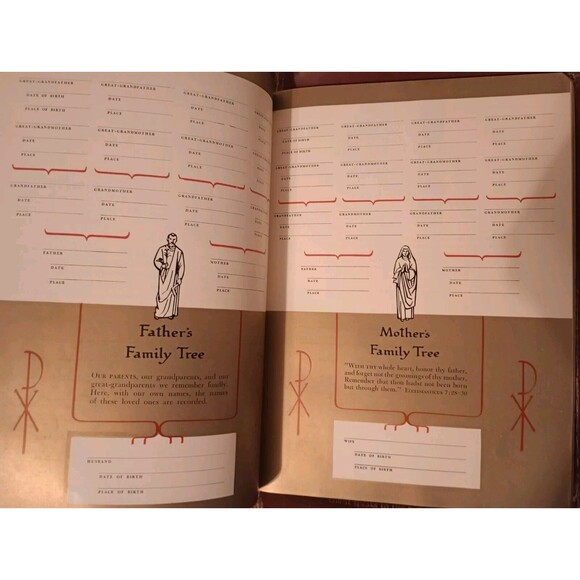 GREAT-GRANDFATHER
DATE OF BIRTH
PLACE OF BIRTH
GREAT-GRANDFATHER
DATE
PLACE
GREAT-GRANDFATHER
DATE
PLACE
GREAT-GRANDMOTHER
DATE
PLACE
GREAT-GRANDMOTHER
DATE
PLACE
GREAT-GRANDMOTHER
DATE
PLACE
GRANDFATHER
DATE
PLACE
GRANDMOTHER
DATE
PLACE
GRANDFATHER
DATE
PLACE
FATHER
DATE
PLACE
MOTHER
DATE
PLACE
Father's
Family Tree
OUR PARENTS, our grandparents, and our
great-grandparents we remember fondly.
Here, with our own names, the names
of these loved ones are recorded.
HUSBAND
DATE OF BIRTH
PLACE OF BIRTH
GREAT-GRANDFATHER
DATE OF BIRTH
PLACE OF BIRTH
GREAT-GRANDFATHER
DATE
PLACE
GREAT-GRANDFATHER
DATE
PLACE
GREAT-GRANDFATHER
DATE
PLACE
GREAT-GRANDMOTHER
DATE
PLACE
GREAT-GRANDMOTHER
DATE
PLACE
GREAT-GRANDMOTHER
DATE
PLACE
GREAT-GRANDMOTHER
DATE
PLACE
GRANDFATHER
DATE
PLACE
GRANDMOTHER
DATE
PLACE
GRANDFATHER
DATE
PLACE
GRANDMOTHER
DATE
PLACE
FATHER
DATE
PLACE
MOTHER
DATE
PLACE
Mother's
Family Tree
"WITH THY whole heart, honor thy father,
and forget not the groanings of thy mother:
Remember that thou hadst not been born
but through them." ECCLESIASTICUS 7:28-30
WIFE
DATE OF BIRTH
PLACE OF BIRTH